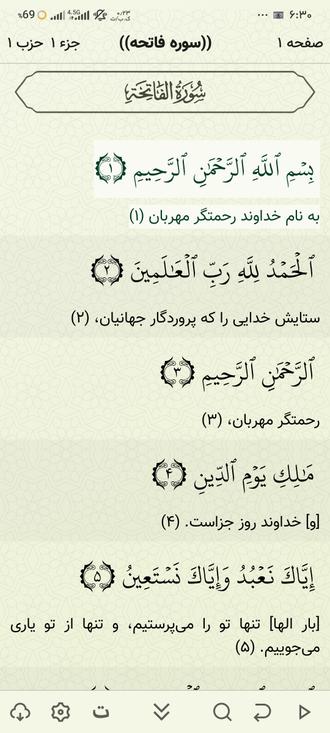 %69 4.5G ۰/۲۳ ک.ب/ث ... ۶:۳۰
صفحه ۱ ((سوره فاتحه)) جزء ۱ حزب ۱
سُورَةُ الفَاتِحَةِ
بِسۡمِ ٱللَّهِ ٱلرَّحۡمَٰنِ ٱلرَّحِيمِ ۱
به نام خداوند رحمتگر مهربان (۱)
ٱلۡحَمۡدُ لِلَّهِ رَبِّ ٱلۡعَٰلَمِينَ ۲
ستایش خدایی را که پروردگار جهانیان، (۲)
ٱلرَّحۡمَٰنِ ٱلرَّحِيمِ ۳
رحمتگر مهربان، (۳)
مَٰلِكِ يَوۡمِ ٱلدِّينِ ۴
[و] خداوند روز جزاست. (۴)
إِيَّاكَ نَعۡبُدُ وَإِيَّاكَ نَسۡتَعِينُ ۵
[بار الها] تنها تو را می‌پرستیم، و تنها از تو یاری
می‌جوییم. (۵)
ت